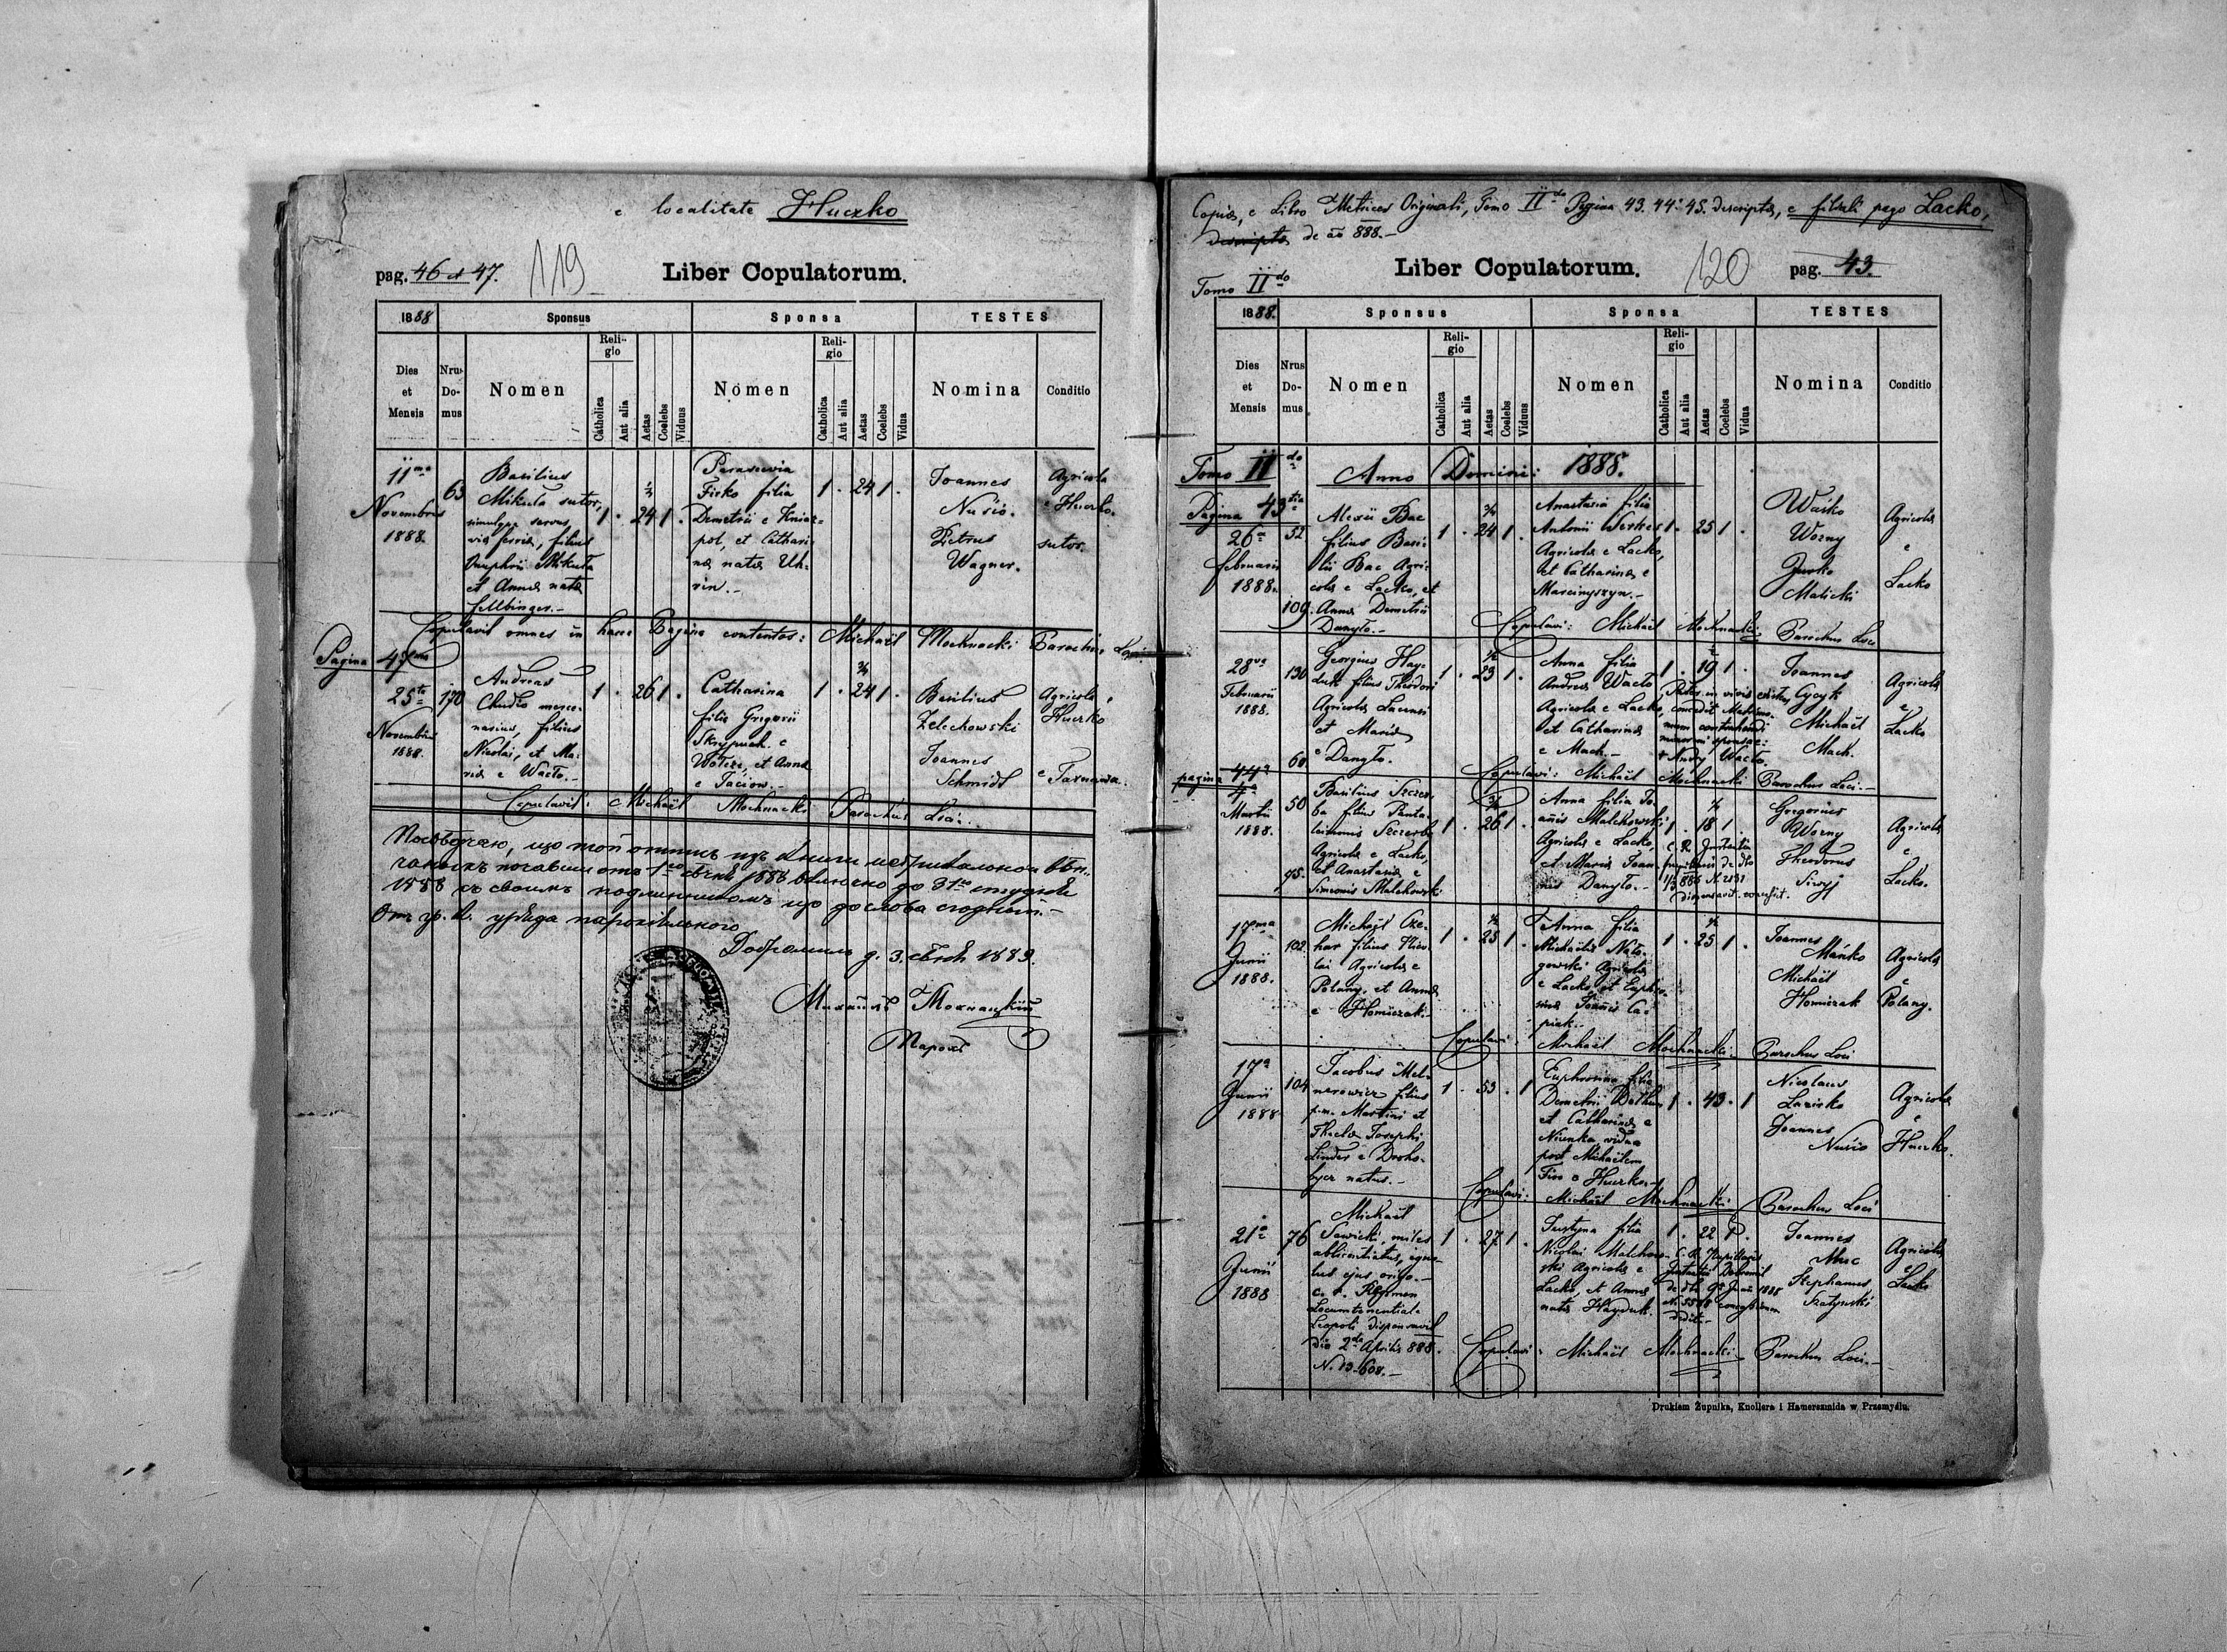 e localitate Huczko
pag. 46 et 47.
119
Liber Copulatorum.
1888
Sponsus
Sponsa
TESTES
Dies et Mensis
Nrus Domus
Nomen
Religio
Catholica
Aut alia
Aetas
Coelebs
Viduus
Nomen
Religio
Catholica
Aut alia
Aetas
Coelebs
Vidua
Nomina
Conditio
11ma
Novembris
1888.
63
Basilius
Mikuła sutor,
simulque servus
viae ferreae, filius
Onuphrii Mikuła
et Annae natae
Fellbinger.-
1 . 24 1 .
Parascevia
Firko filia
Demetrii e Kniaź=
pol, et Cathari=
nae natae Uh=
rin.-
1 . 24 1 .
Joannes
Nuśio.
Petrus
Wagner.
Agricola
e Huczko.
sutor.
Copulavit omnes in hacce Pagina contentos: Michaël Mochnacki Parochus Loci
Pagina 47ma
25ta
Novembris
1888.
170
Andreas
Chudło merce-
narius, filius
Nicolai, et Ma-
riae e Wacło.-
1 . 26 1 .
Catharina
filia Gregorii
Skrypuch e
Wołcze, et Annae
e Taciow.-
1 . 24 1 .
Basilius
Zelechowski
Joannes
Schmidt
Agricola,
Huczko
e Tarnawa.
Copulavit: Michaël Mochnacki Parochus Loci.
Посвѣдчаю, що той отписъ изъ Книги метрикальной вѣн-
чаныхъ почавши отъ 1го Сѣчня 1888 включно до 31го студня
1888 съ своимъ подлинникомъ що до слова сходный.-
Отъ гр. к. уряда парохіяльного
Добромиль д. 3. Сѣчня 1889.
Михаилъ Мохнацкій
Парохъ
Copia, e Libro Metrices Originali, Tomo IIdo Pagina 43. 44. 45. descripta, e filiali pago Lacko,
descripta de aõ 888.-
Tomo IIdo
Liber Copulatorum.
120
pag. 43.
1888.
Sponsus
Sponsa
TESTES
Dies et Mensis
Nrus Domus
Nomen
Religio
Catholica
Aut alia
Aetas
Coelebs
Viduus
Nomen
Religio
Catholica
Aut alia
Aetas
Coelebs
Vidua
Nomina
Conditio
Tomo IIdo Anno Domini: 1888.
Pagina 43tia
26a
Februarii
1888.
52
109.
Alexii Bac
filius Basi-
lii Bac Agri-
colae e Lacko, et
Annae Demetrii
Danyło.-
1 . 24 1 .
Anastasia filia
Antonii Werkes
Agricolae e Lacko,
et Catharinae e
Marcinyszyn.-
1 . 25 1 .
Waśko
Worny
Jurko
Malicki
Agricolae
e
Lacko
Copulavi: Michaël Mochnacki Parochus Loci
28va
Februarii
1888.
130
60
Georgius Hay-
duk filius Theodori
Agricolae Lacensi
et Mariae
e
Danyło.
1 . 23 1 .
Anna filia
Andreae Wacło
Agricolae e Lacko,
et Catharinae
e Mach.-
1 . 19 1 .
Pater in vivis existens
concedit Matrimo-
nium contrahendi
minoreni sponsae:
+ Andry Wacło.
Joannes
Gocyk
Michaël
Mach.
Agricolae
e
Lacko
Copulavi: Michaël Mochnacki Parochus Loci.-
pagina 44a
Martii
1888.
50
75.
Basilius Szczer-
ba filius Panta-
leimonis Szczerba
Agricolae e Lacko,
et Anastasiae
Simeonis Malchowski
1 . 26 1 .
Anna filia Jo-
annis Malchowski
Agricolae e Lacko,
et Mariae Joan-
nis Danyło.-
1 . 18 1 .
Gregorius
Worny
Theodorus
Siryj
Agricolae
e
Lacko.
17ma
Junii
1888.
102.
Michaël Cze-
har filius Nico-
lai Agricolae e
Polany, et Annae
e Homiczak.-
1 . 25 1 .
Anna filia
Michaelis Nało-
gowski Agricolae
e Lacko, et Euphro-
sinae Joannis Ca-
piak.-
1 . 25 1 .
Joannes
Mańko
Michaël
Homiczak
Agricolae
e
Polany.
Copulavi: Michaël Mochnacki Parochus Loci
17a
Junii
1888.
104
Jacobus Mel-
narowicz filius
p.m. Martini et
Theclae Josephi
Linder e Droho-
bycz natus.-
1 . 53 . 1
Euphrosina filia
Demetrii
et Catharinae e
vidua
post Michaëlem
Firo e Huczko.
1 . 43 . 1
Nicolaus
Łazirko
Joannes
Nuśio
Agricolae
e
Huczko.
Copulavi: Michaël Mochnacki Parochus Loci
21a
Junii
1888
76
Michaël
Sawicki, miles
ablicentiatus, igno-
tus ejus origo.-
c. r. Regimen
Locumtenential.
Leopoli dispensavit
die 2da Aprilis 888.
N. 19.608.-
1 . 27 1 .
Justyna filia
Nicolai Malchow-
ski Agricolae e
Lacko, et Annae
natae Hayduk.
1 . 22 1 .
C. R. Pupillaris
Instantia Dobromil
de dto 9a Junii 1888
N. 5578 consensum
dedit.-
Joannes
Muc
Stephanus
Szatyński
Agricolae
e
Lacko
Copulavi: Michaël Mochnacki Parochus Loci.-
Drukiem Żupnika, Knollera i Hamerszmida w Przemyślu.